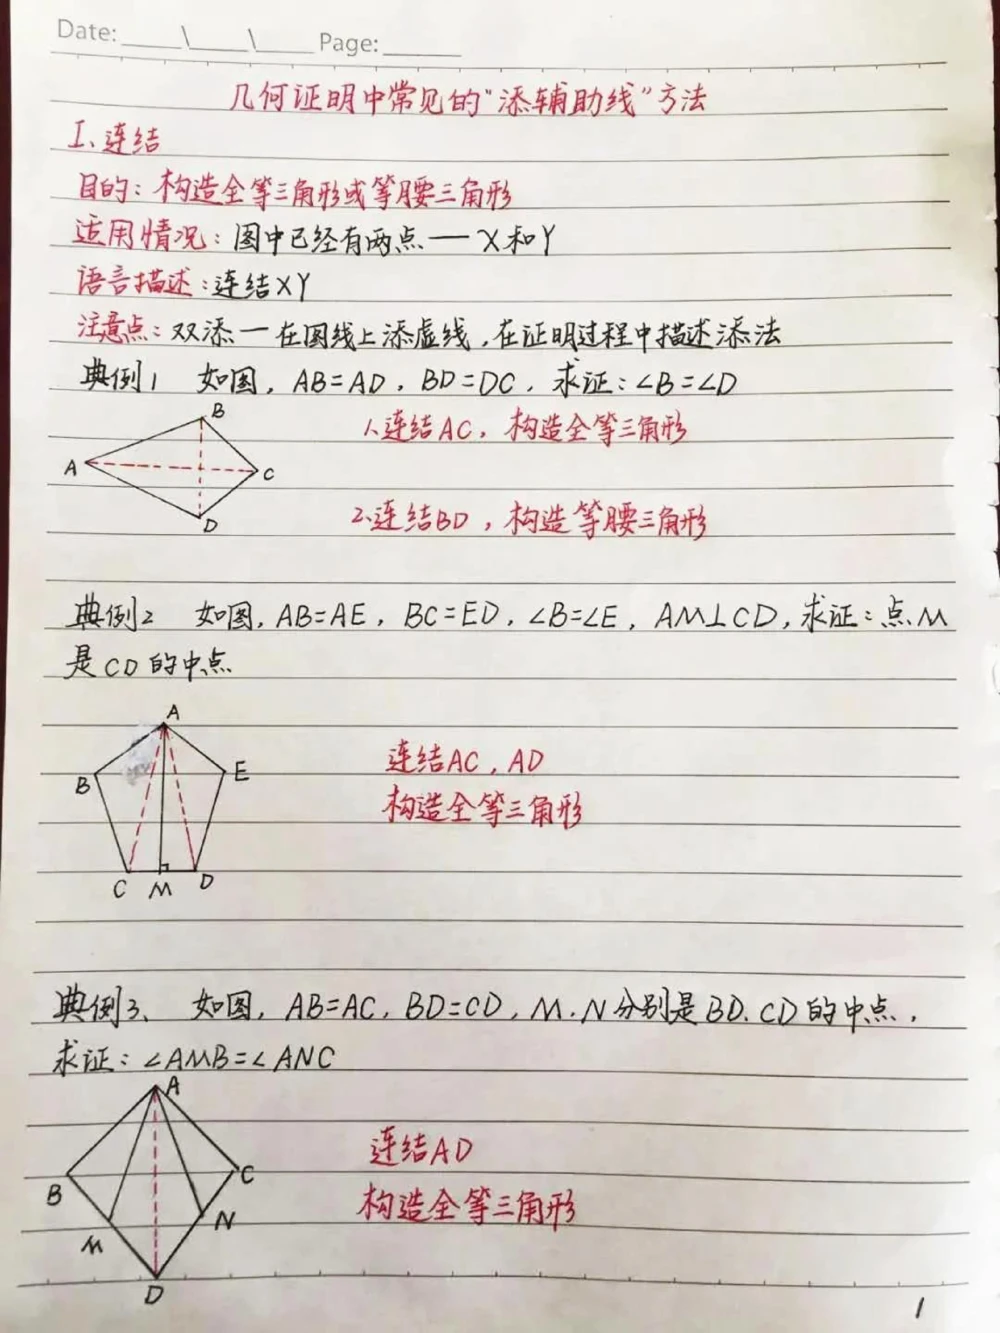 Date: ____\____\____ Page: ______
几何证明中常见的"添辅助线"方法
I、连结
目的：构造全等三角形或等腰三角形
适用情况：图中已经有两点——X和Y
语言描述：连结XY
注意点：双添—在图线上添虚线，在证明过程中描述添法
典例1 如图，AB=AD，BD=DC，求证：∠B=∠D
B
A
C
D
1、连结AC，构造全等三角形
2、连结BD，构造等腰三角形
典例2 如图，AB=AE，BC=ED，∠B=∠E，AM⊥CD，求证：点M
是CD的中点
A
B
E
C M D
连结AC，AD
构造全等三角形
典例3、 如图，AB=AC，BD=CD，M、N分别是BD、CD的中点，
求证：∠AMB=∠ANC
A
B
C
M
N
D
连结AD
构造全等三角形
1